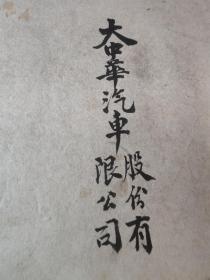 大中華汽車
股份有
限公司